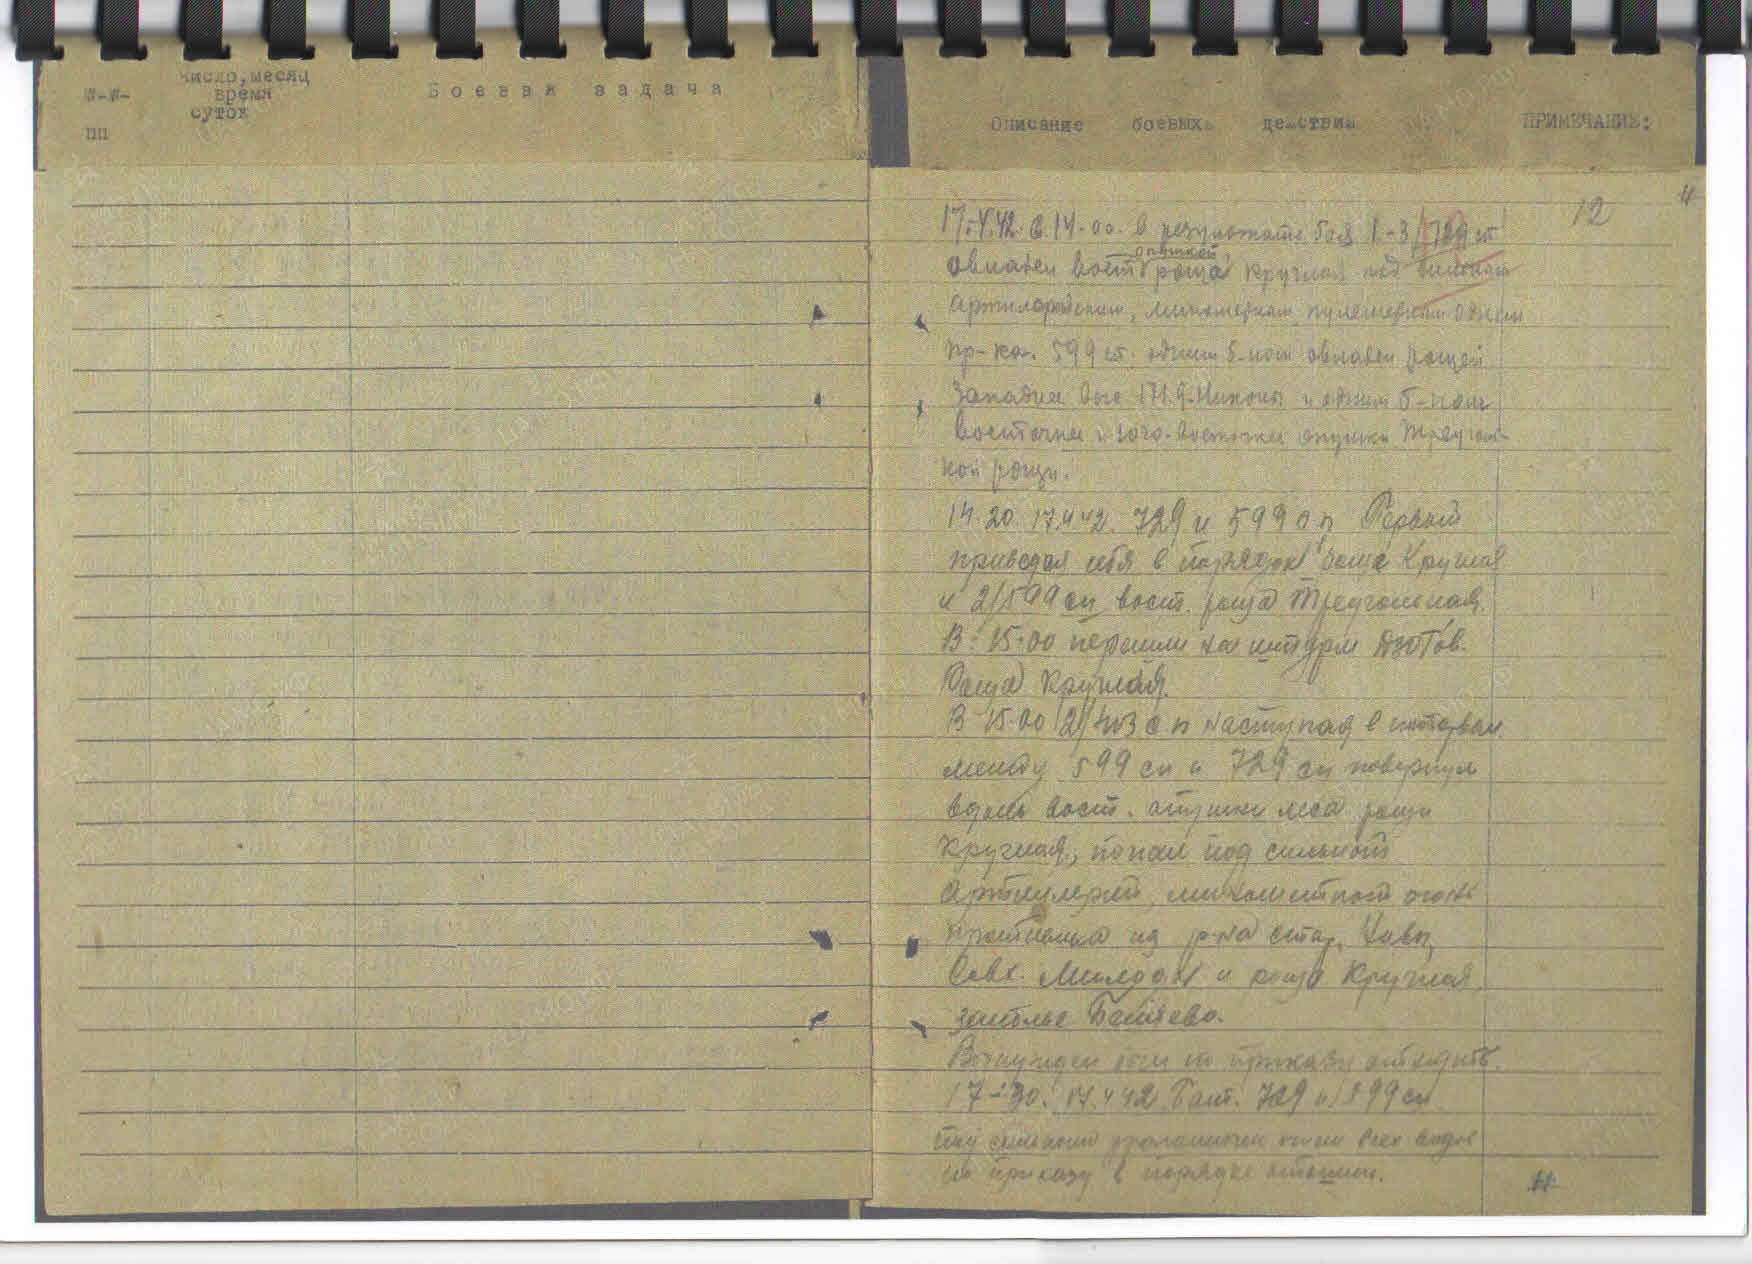 №-№-
пп
число, месяц
время
суток
Боевая задача
Описание боевых действий
ПРИМЕЧАНИЕ:
12
17.4.42. в 14-00. в результате боя 1-3/729 сп
опушкой
овладел вост роща Круглая под сильным
артилерийским, минометным, пулеметным огнем
пр-ка. 599 сп. одним б-ном овладел рощей
Западнее выс 171.9. и одним б-ном
восточнее и юго-восточнее опушки Треуголь-
ной рощи.
14.20. 17.4.42. 729 и 599 сп Первый
приводил себя в порядок роща Круглая
и 2/599 сп вост. роща Треугольная.
В-15-00 перешли на штурм дзотов.
Роща Круглая.
В-15-00 2/403 сп наступая в интервал
между 599 сп и 729 сп повернул
вдоль вост. опушки леса рощи
Круглая, попал под сильный
артиллерий, минометный огонь
противника из р-на
Совх. и роща Круглая,
Вынужден был отходить.
17-30. 17.4.42. Бат. 729 и 599 сп
под сильным огнем всех видов
по приказу в порядке отошли.